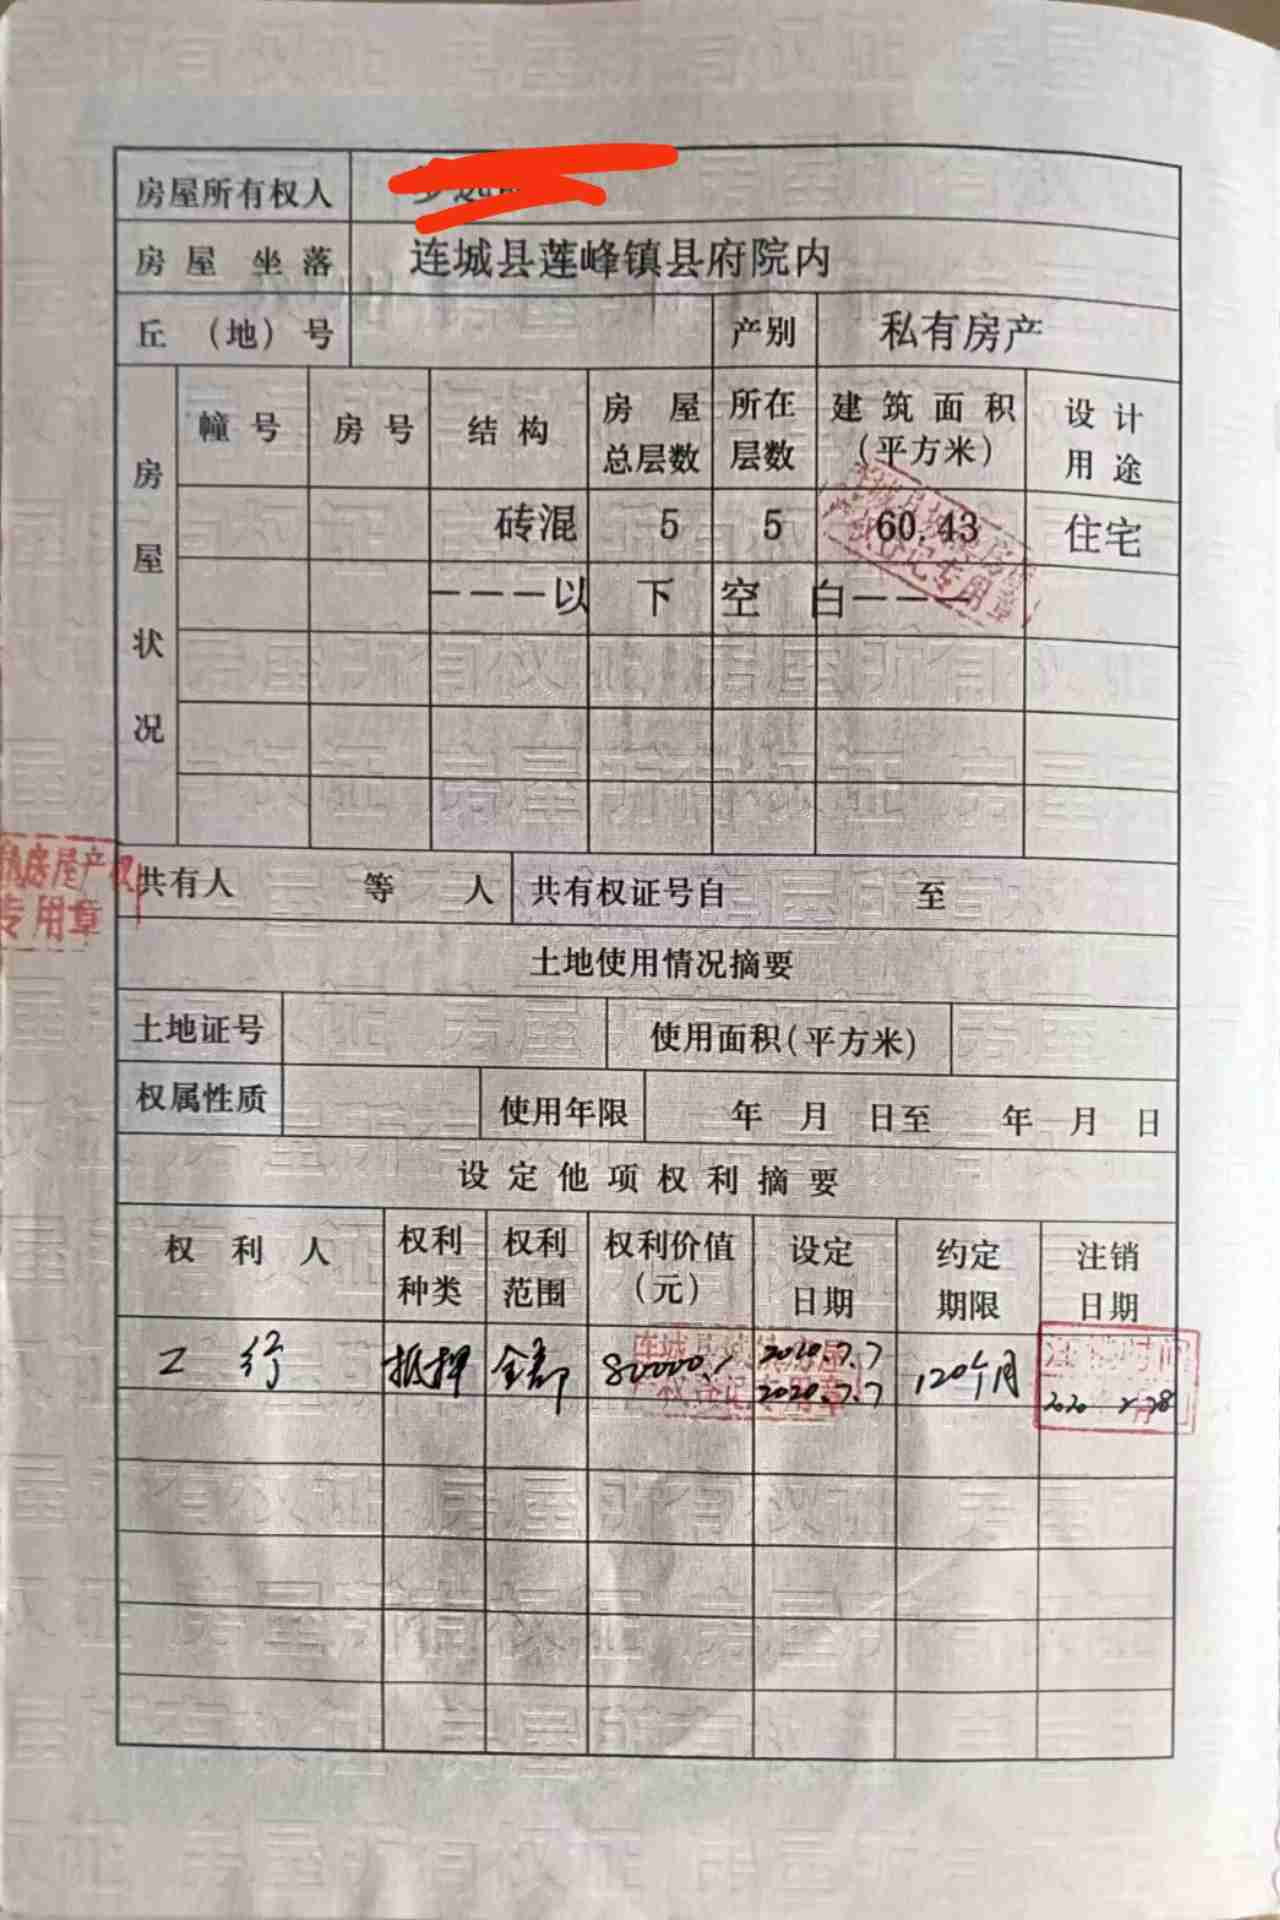 房屋所有权人
房屋坐落 连城县莲峰镇县府院内
丘（地）号 产别 私有房产
房屋状况
幢号 房号 结构 房屋总层数 所在层数 建筑面积（平方米） 设计用途
砖混 5 5 60.43 住宅
---以下空白---
房屋产权
专用章
共有人 等 人 共有权证号自 至
土地使用情况摘要
土地证号 使用面积(平方米)
权属性质 使用年限 年 月 日至 年 月 日
设定他项权利摘要
权利人 权利种类 权利范围 权利价值（元） 设定日期 约定期限 注销日期
工行 抵押 全部 80000. 120个月
2020.7.7